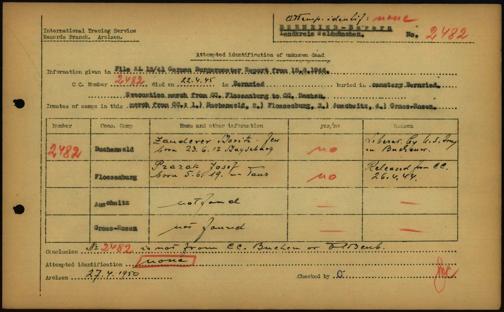 Attemp. identif.: none
International Tracing Service
Records Branch. Arolsen.
BERNRIED - Bavaria
Landkreis
No. 2482
Attempted identification of unknown dead
Information given in File AL 12/41 German Burgermeister Report from
C.C. Number 2482 died on 22.4.45 in Bernried buried in cemetery Bernried.
Evacuation march from CC. Flossenburg to CC. Dachau.
Inmates of camps in this march from CC.s 1.) Buchenwald, 2.) Flossenburg, 3.) Auschwitz, 4.) Gross-Rosen.
Number
Conc. Camp
Name and other information
yes/no
Remarks
2482
Buchenwald
born 23.6.12
no
Liberat. by U.S. Army
in Buchenw.
Flossenburg
Josef
born 5.6.19. in Taus
no
Released from CC.
26.4.44.
Auschwitz
not found
—
Gross-Rosen
not found
—
Conclusion No 2482 is not from C.C. Buchen or Flossenb.
Attempted identification none
Arolsen 27.4.1950
Checked by